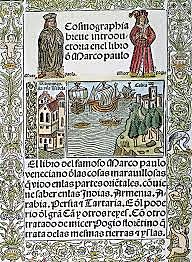 Cosmographia
breue introdu-
ctoria en el libro
d Marco paulo
El libro del famoso Marco paulo
veneciano d las cosas marauillosas
q vido en las partes oriẽtales. cõuie
ne saber en las Indias, Armenia, A
rabia, Persia z Tartaria. E del pode
rio del grã Cã y otros reyes. Cõ otro
tratado de micer Pogio florẽtino q
trata de las mesmas tierras z yslas.